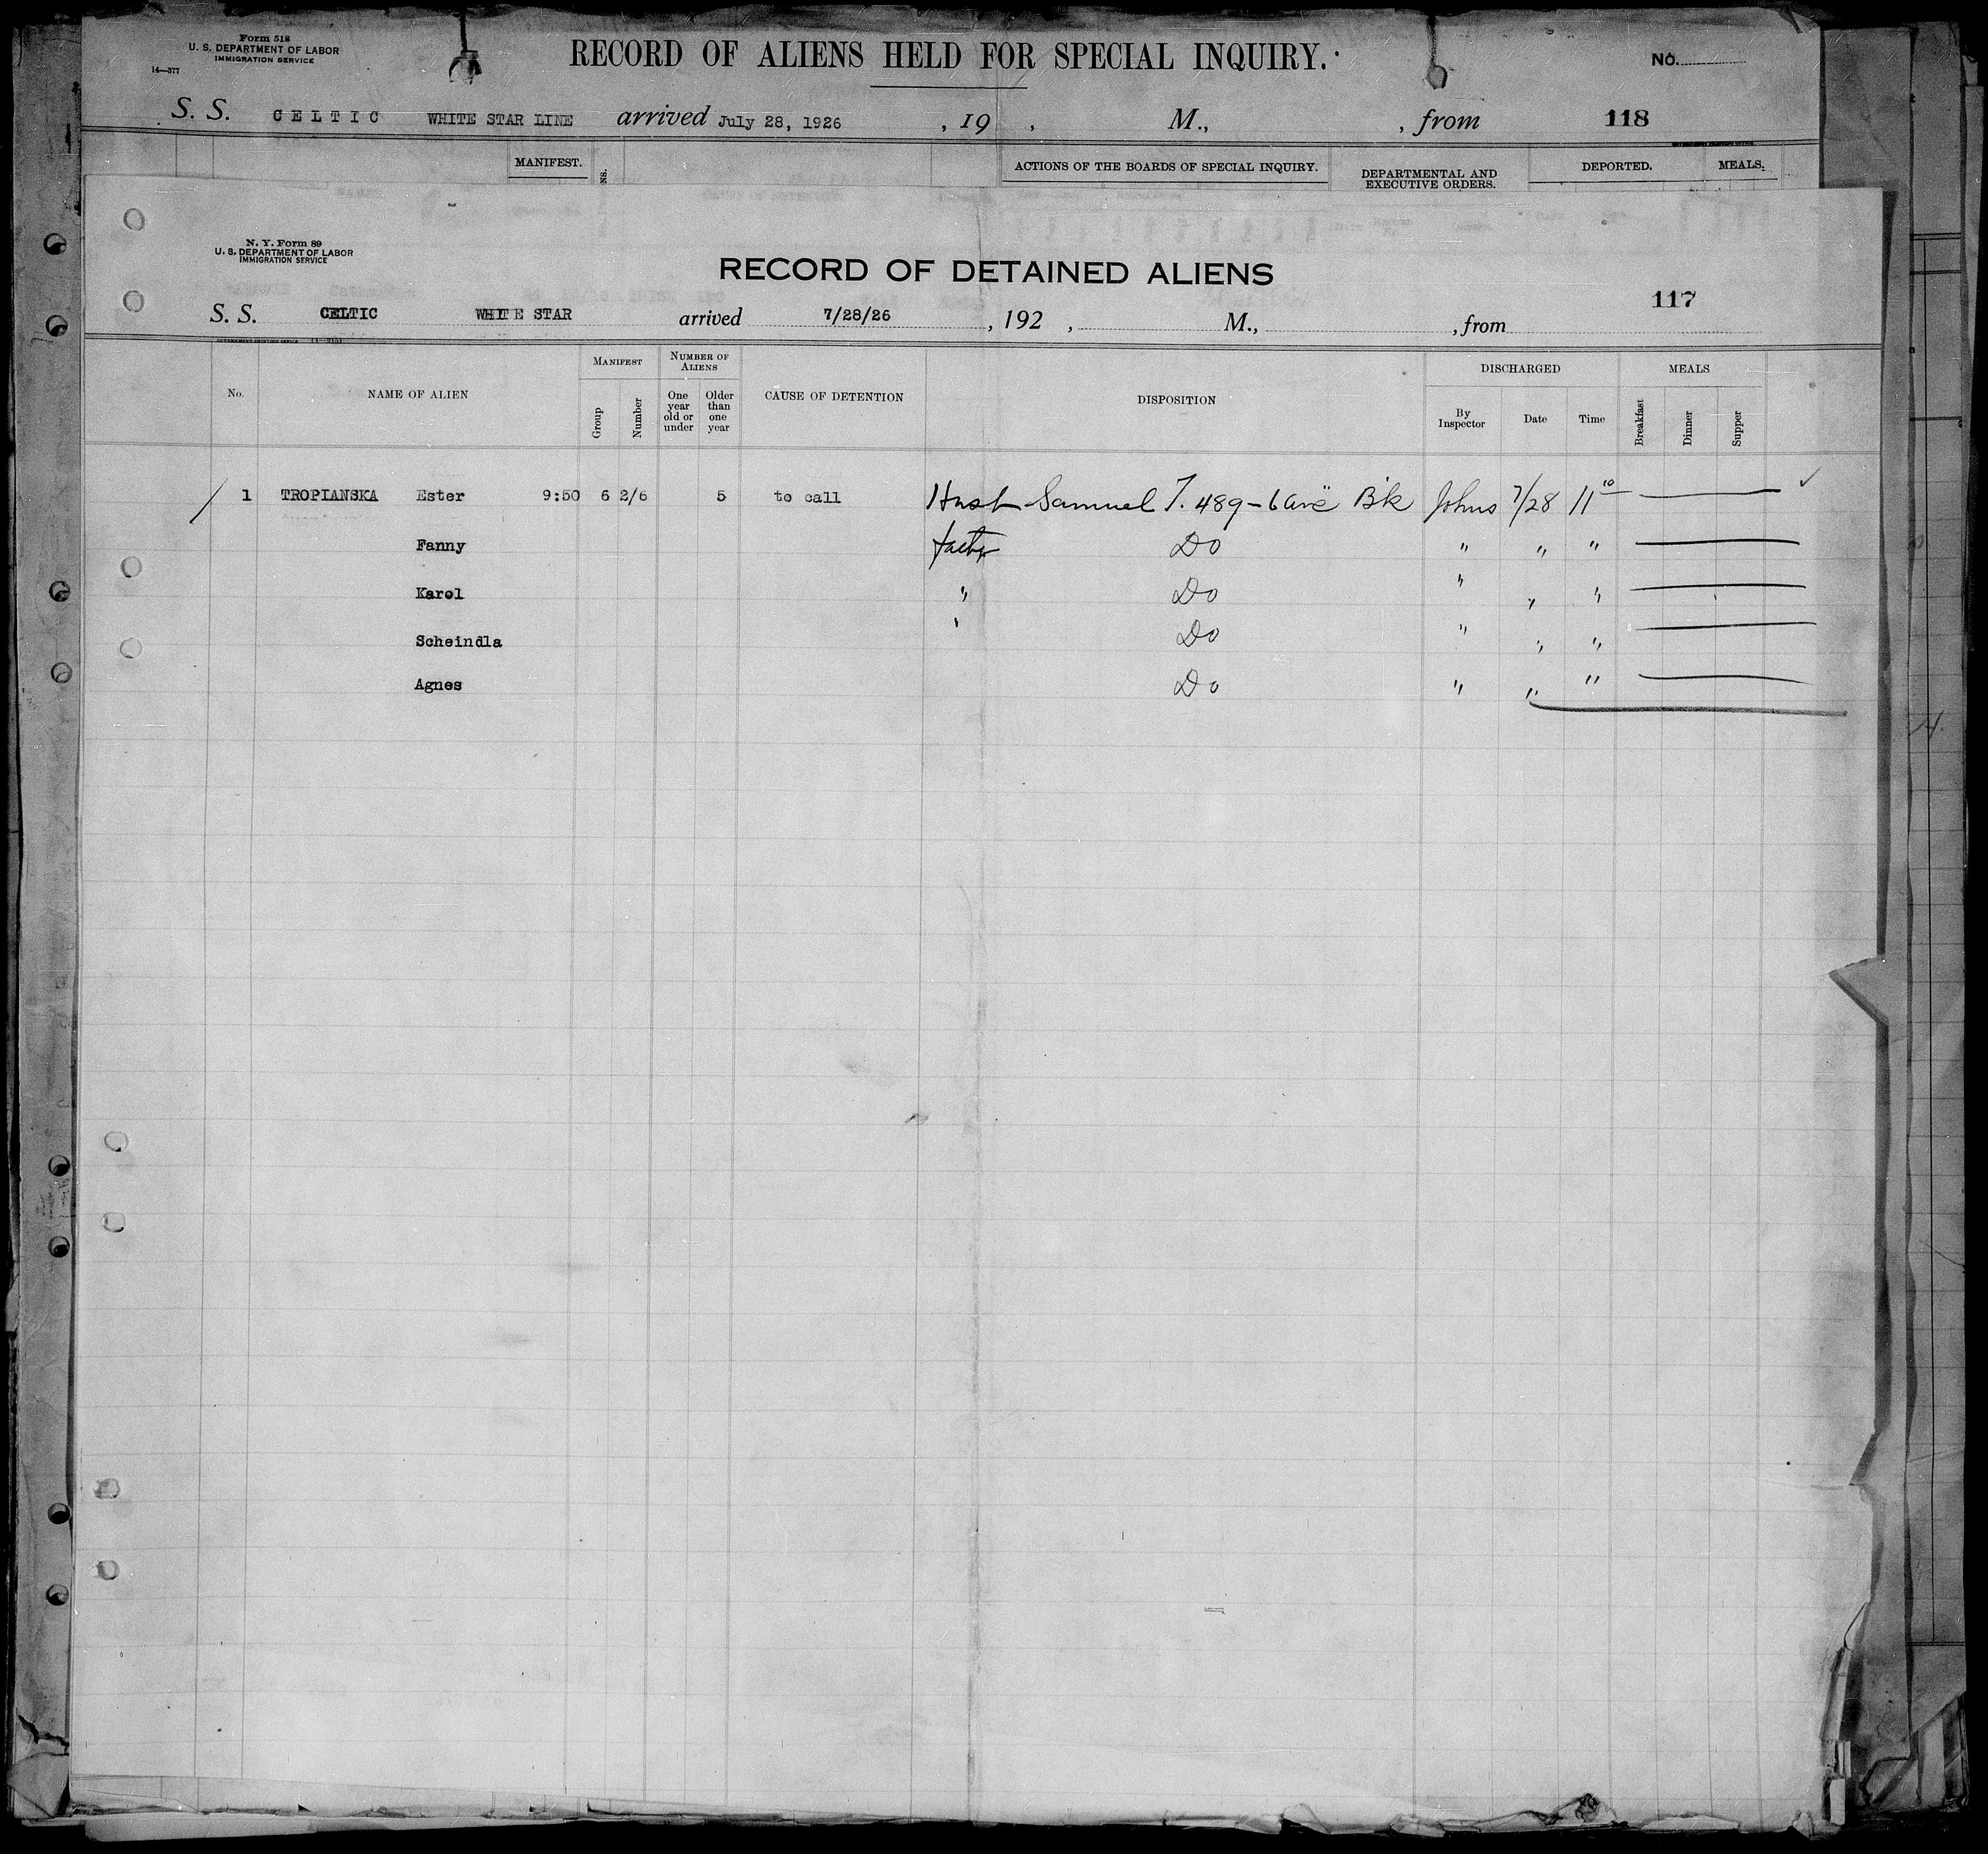 Form 518
U. S. DEPARTMENT OF LABOR
IMMIGRATION SERVICE
14—377
RECORD OF ALIENS HELD FOR SPECIAL INQUIRY.
No.
S. S. CELTIC WHITE STAR LINE arrived July 28, 1926 , 19 , M., , from 118
MANIFEST. ACTIONS OF THE BOARDS OF SPECIAL INQUIRY. DEPARTMENTAL AND EXECUTIVE ORDERS. DEPORTED. MEALS.
N. Y. Form 89
U. S. DEPARTMENT OF LABOR
IMMIGRATION SERVICE
RECORD OF DETAINED ALIENS
117
S. S. CELTIC WHITE STAR arrived 7/28/26 , 192 , M., , from
No. NAME OF ALIEN MANIFEST Group Number NUMBER OF ALIENS One year old or under Older than one year CAUSE OF DETENTION DISPOSITION DISCHARGED By Inspector Date Time MEALS Breakfast Dinner Supper
1 TROPIANSKA Ester 9:50 6 2/6 5 to call Husb Samuel T. 489-6 Ave B'k Johns 7/28 11 10
Fanny father Do " " "
Karol " Do " " "
Scheindla " Do " " "
Agnes Do " " "